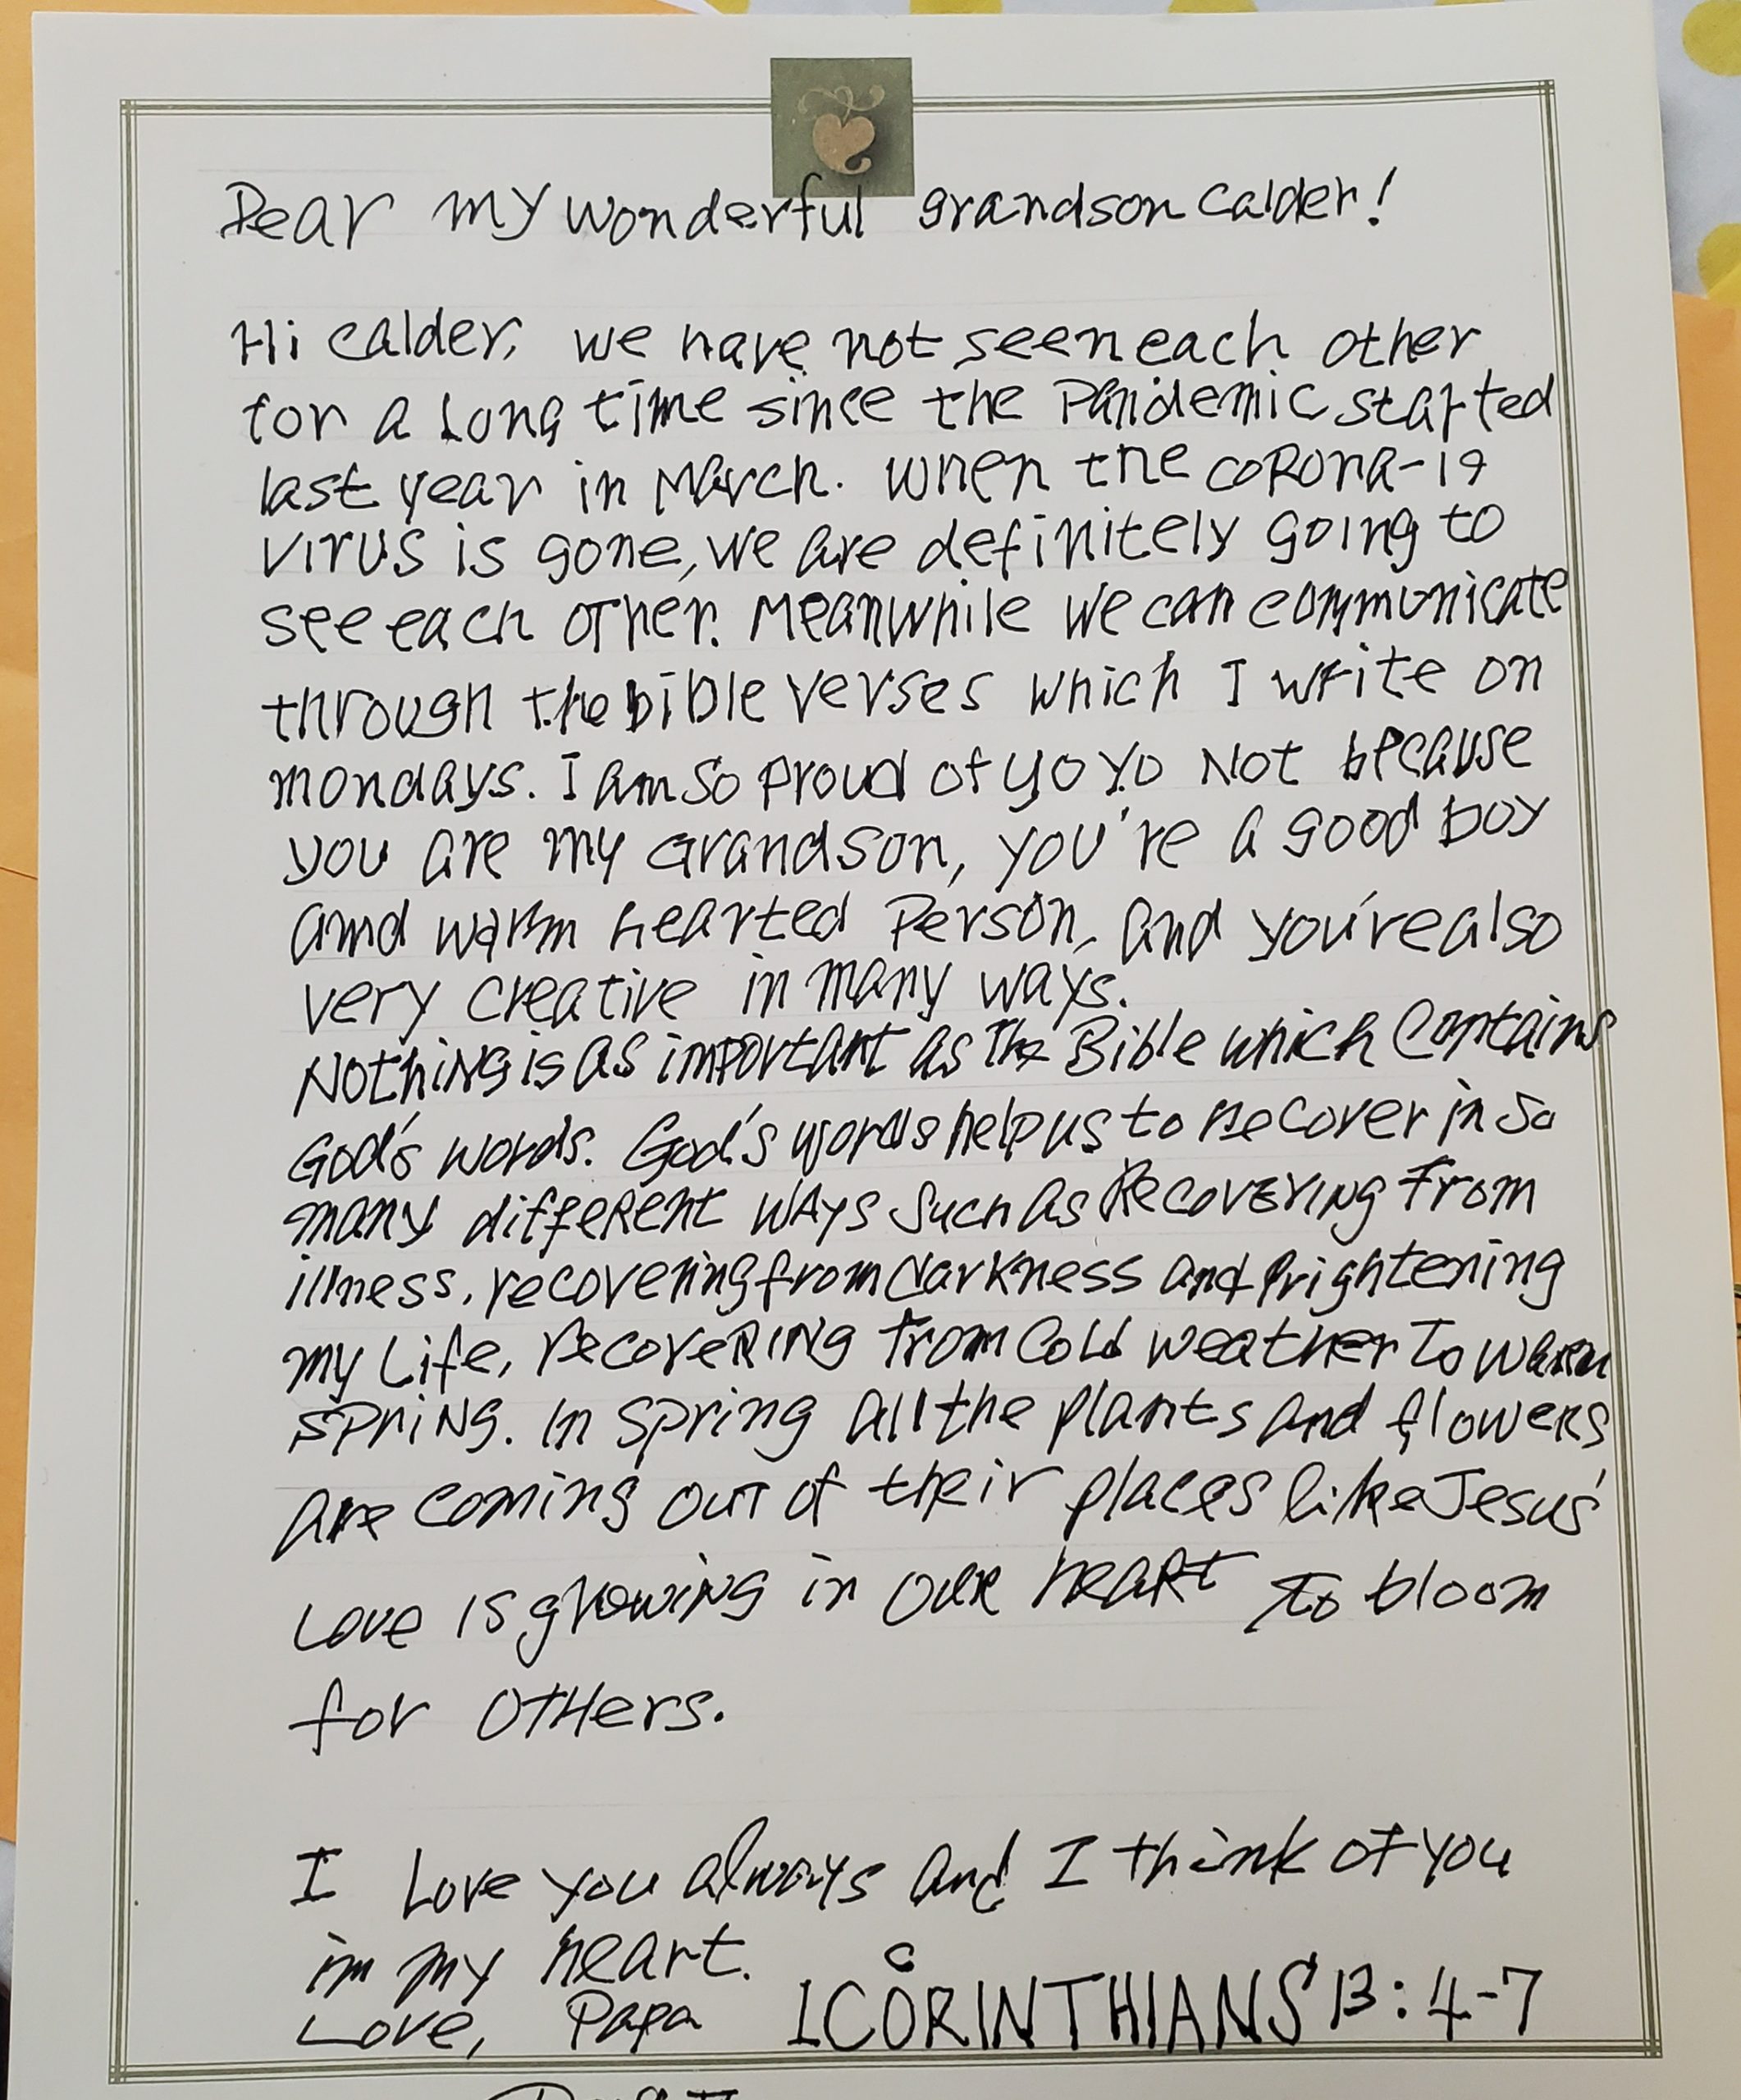 Dear my wonderful grandson Calder!
Hi Calder, we have not seen each other
for a long time since the Pandemic started
last year in March. When the coRona-19
virus is gone, we are definitely going to
see each other. Meanwhile we can communicate
through the bible verses which I write on
mondays. I am so proud of yo yo Not because
you are my Grandson, you're a good boy
amd warm hearted Person, and you're also
very creative in many ways.
Nothing is as important as The Bible which Contains
God's words. God's words help us to recover in so
many different ways such as Recovering from
illness, recovering from darkness and brightening
my Life, recovering from Cold weather To warm
spring. In spring all the plants and flowers
are coming out of their places like Jesus'
Love is growing in our heart To bloom
for others.
I Love you always and I think of you
in my heart.
Love, Papa 1CORINTHIANS 13:4-7